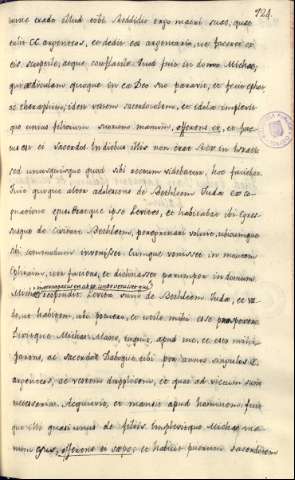 124.
nunc trado illud tibi. Reddidit ergo matri suae, quae
tulit CC argenteos, et dedit ea argentario, ut faceret ex
eis sculptile, atque conflatile, quod fuit in domo Michae,
qui aediculam quoque in ea Deo sua paravit, et fecit ephot
ac theraphim, idem vestem sacerdotalem, et idola implevit
que unius filiorum suorum manum, offerens ex, et fac
tus est ei sacerdos. In diebus illis non erat Rex in Israel
sed unusquisque quod sibi rectum videbatur, hoc faciebat
Fuit quoque alter adolescens de Bethleem Juda ex co
gnatione ejus, eratque ipse Levites, et habitabat ibi. Egres
susque de civitate Bethleem, peregrinari voluit, ubicumque
sibi commodum invenisset. Cumque venisset in montem
Ephraim, iter faciens, et declinasset parumper in domum
Michae, interrogatus est ab eo unde venisset. Qui
respondit: Levita sum de Bethleem Juda, et va
do, ut habitem ubi potuero, et utile mihi esse prospexero.
Dixitque Michas: Mane, inquit, apud me, et esto mihi
parens, ac sacerdos. Daboque tibi per annos singulos X.
argenteos, ac vestem duplicem, et quae ad victum sunt
necessaria. Acquievit, et mansit apud hominem, fuit
que illi quasi unus de filiis. Implevitque Michas ma
num ejus, offerens ei, et habuit puerum sacerdotem